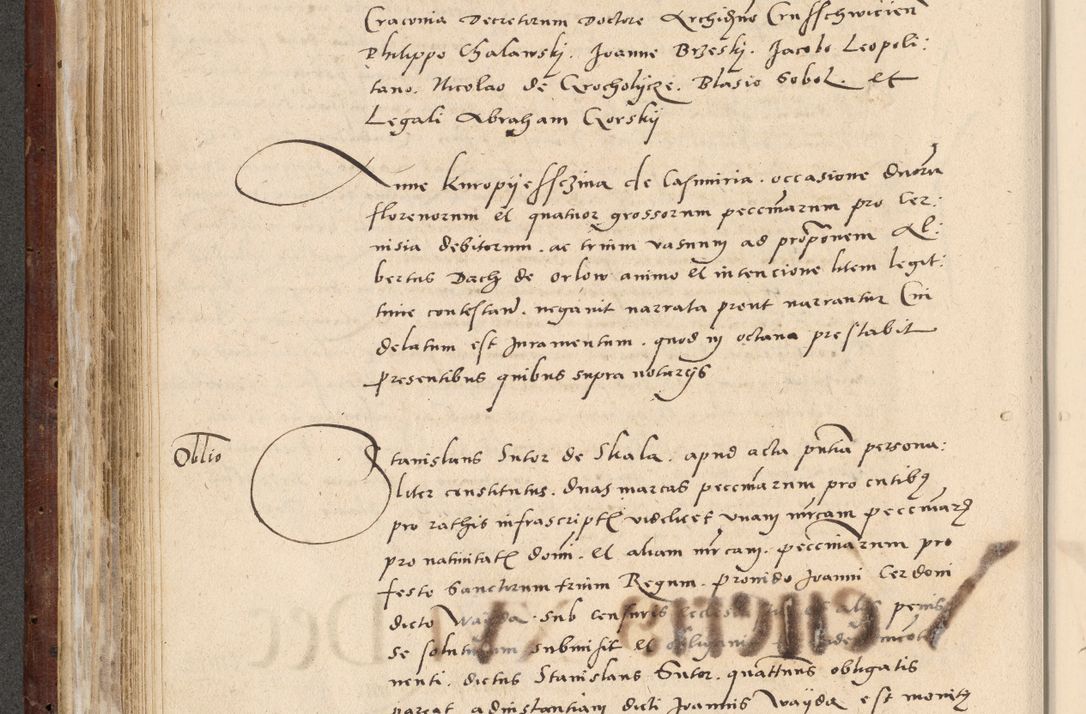 Craconia Decretorum Doctore Archidno Crusschwicien
Philippo Chalawski. Joanne Brzeskj. Jacobo Leopoli:
tano. Nicolao de Crocholijcze. Blasio Sobol. et
Legali Abraham Gorskij
Anne Kuropijesszina de Casmiria. occasione duoru
florenorum et quatuor grossorum peccuniarum pro Cer:
uisia debitorum. ac trium vasunm ad proponem Al:
bertus Dach de Orlow animo et intencione litem legit:
time contestand. negauit narrata prout narrantur Cui
delatum est Juramentum. quod in octana prestabit
presentibus quibus supra notarijs
Obllio
Stanislaus Sutor de Skala. apud acta pntia persona:
liter constitutus. duas marcas peccuniarum pro
pro rathis infrascriptis videlicet vnam mrcam peccuniarum
pro natiuitatis domi. et aliam mrcam. peccuniarum pro
festo Sanctorum trium Regum. prouido Joanni Cerdoni
dicto Wayda. sub censuris penis
se submisit et
nenti. dictus Stanislaus Sutor. quattinus obligatis
pareat adinstantiam dicti Joannis Wayda est monitus